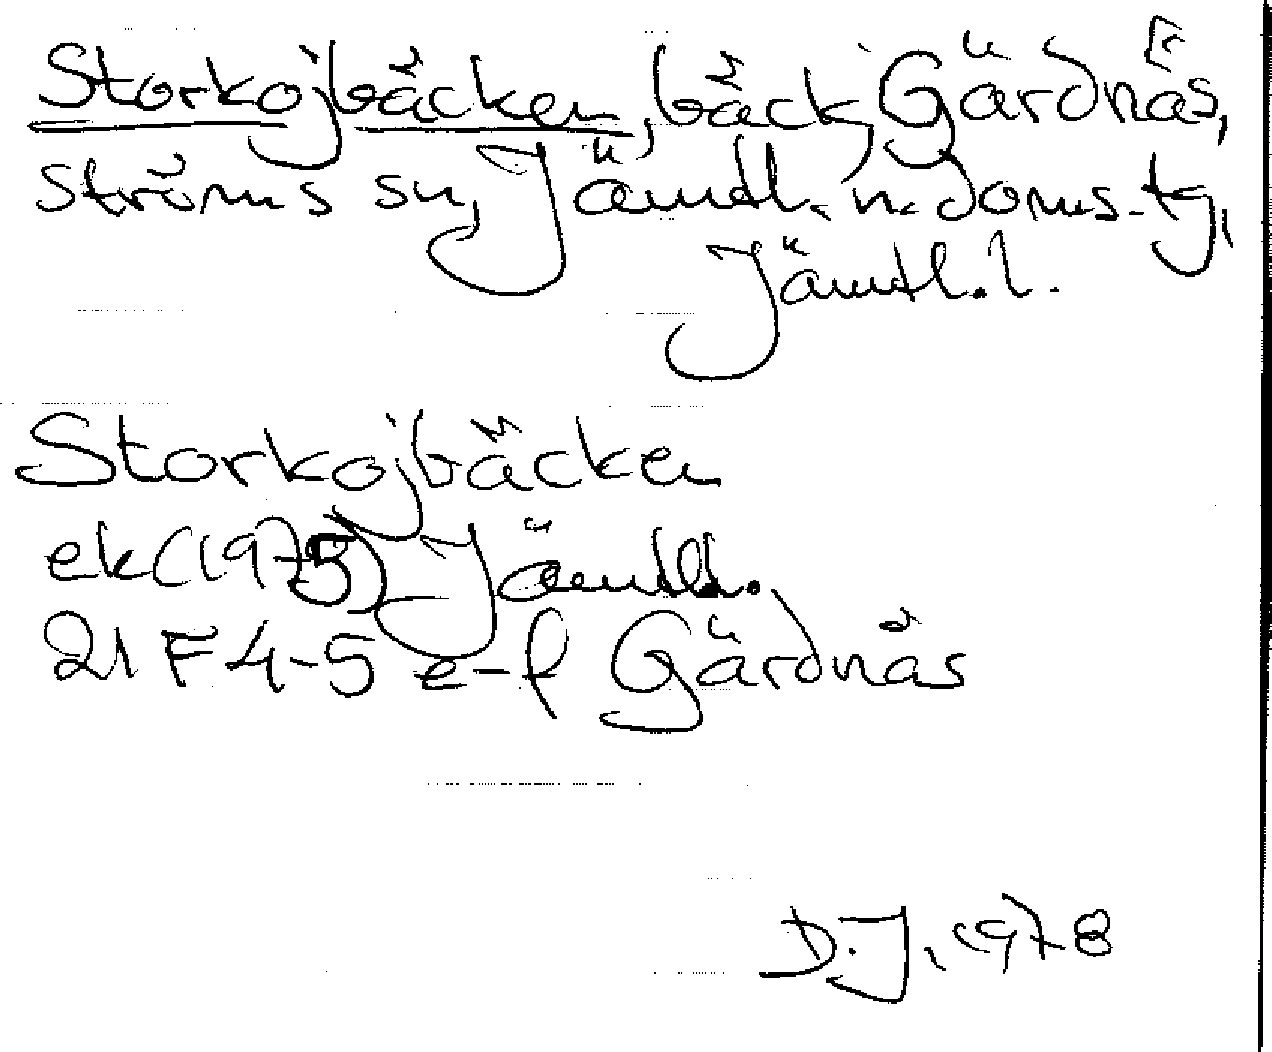 Storkojbäcken, bäck, Gärdnäs,
Ströms sn, Jämtl. n. doms. tg,
Jämtl. l.
Storkojbäcken
ek (1975) Jämtl.
21 F 4-5 e-f Gärdnäs
D.J. 1978